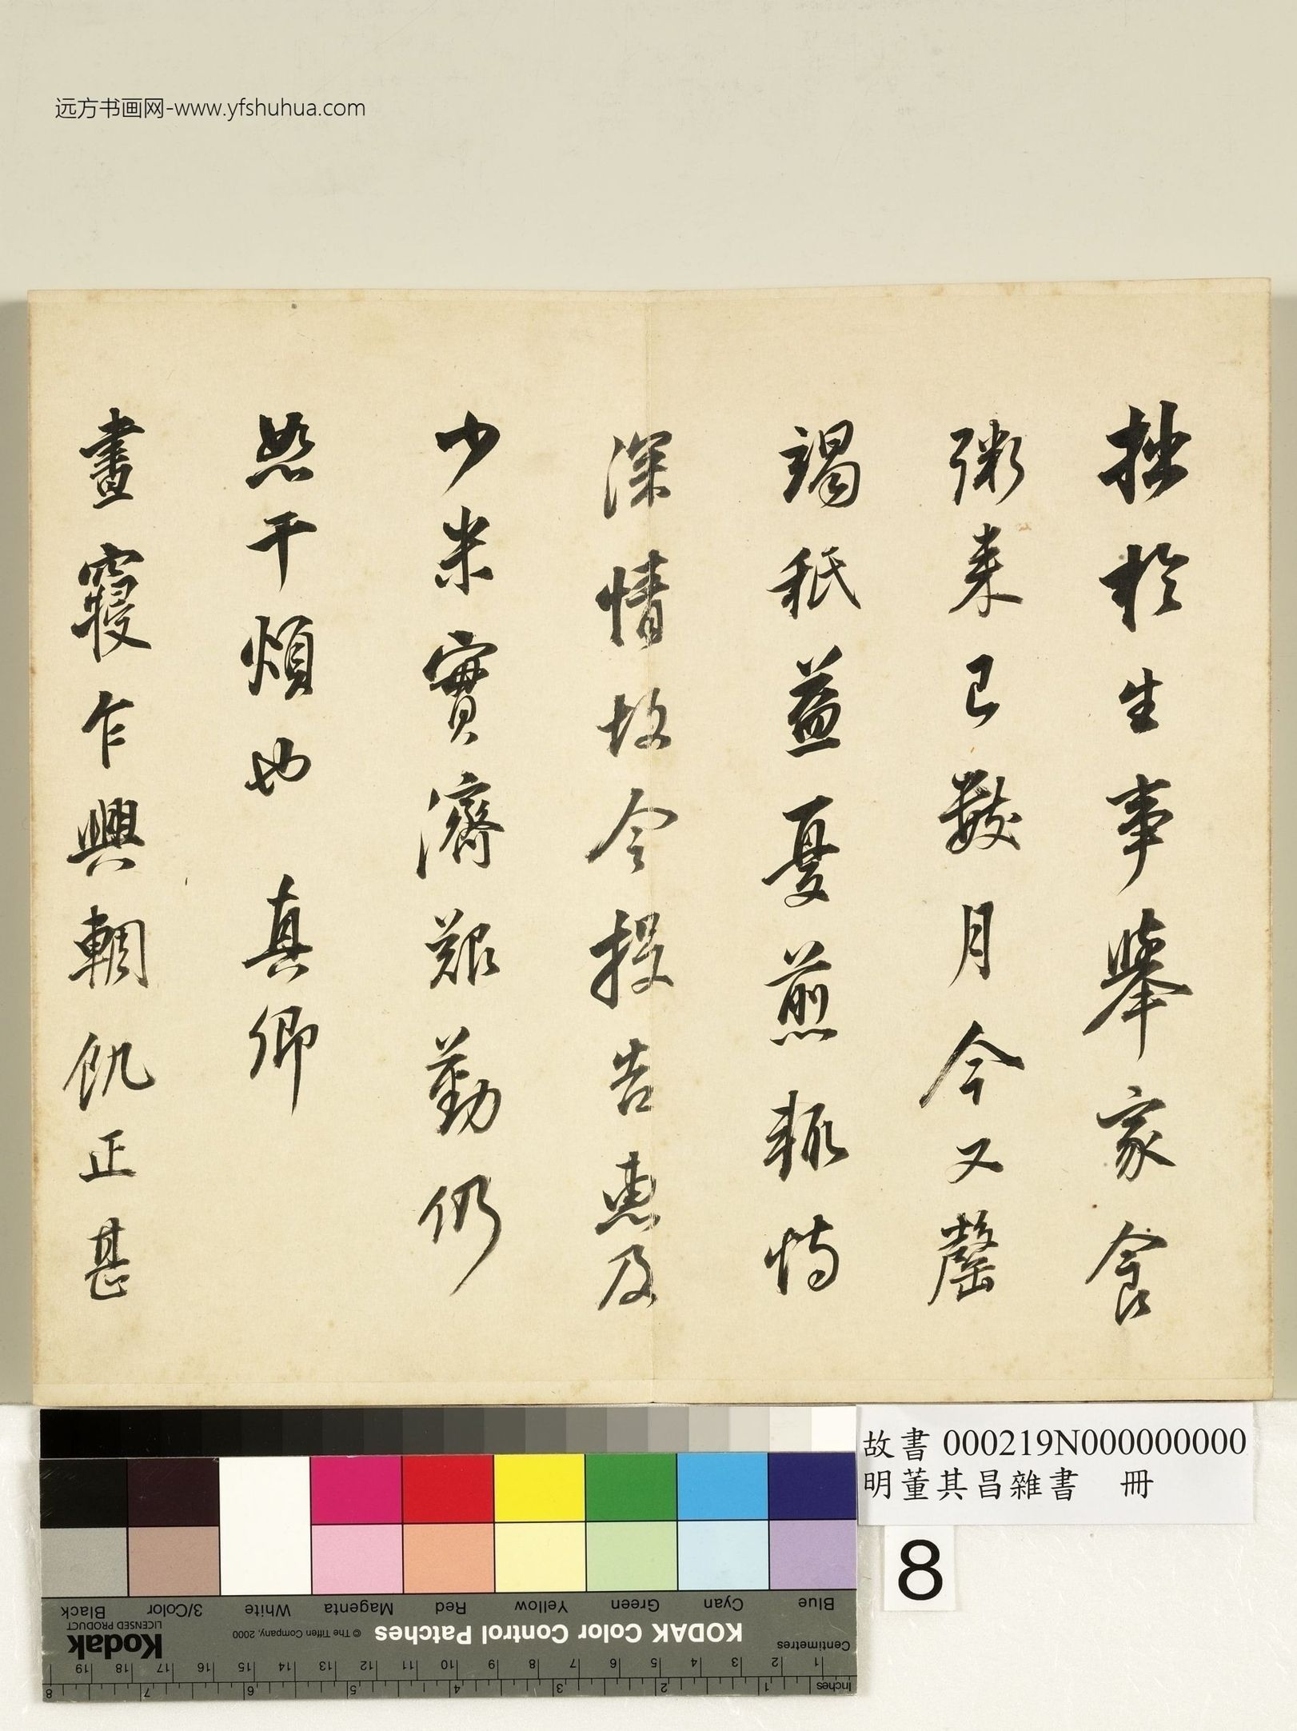 远方书画网-www.yfshuhua.com
拙於生事舉家食
粥来已數月今又罄
竭秖益憂煎輙恃
深情故令投告惠及
少米實濟艱勤仍
恕干煩也 真卿
晝寝乍興輖飢正甚
故書 000219N000000000
明董其昌雜書 冊
8
Blue Cyan Green Yellow Red Magenta White 3/Color Black
KODAK Color Control Patches
© The Tiffen Company, 2000
Kodak
LICENSED PRODUCT
Centimetres
1 2 3 4 5 6 7 8 9 10 11 12 13 14 15 16 17 18 19
Inches
1 2 3 4 5 6 7 8